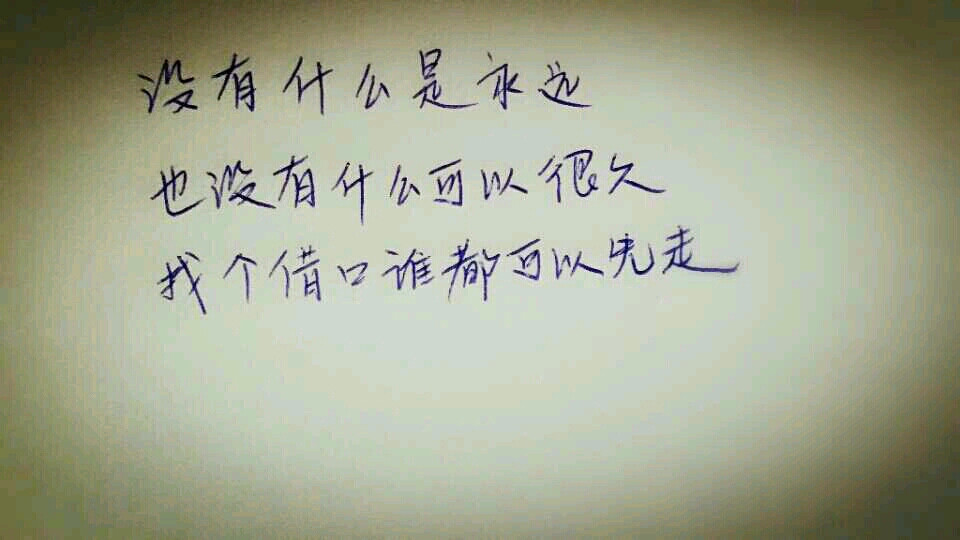 没有什么是永远
也没有什么可以很久
找个借口谁都可以先走